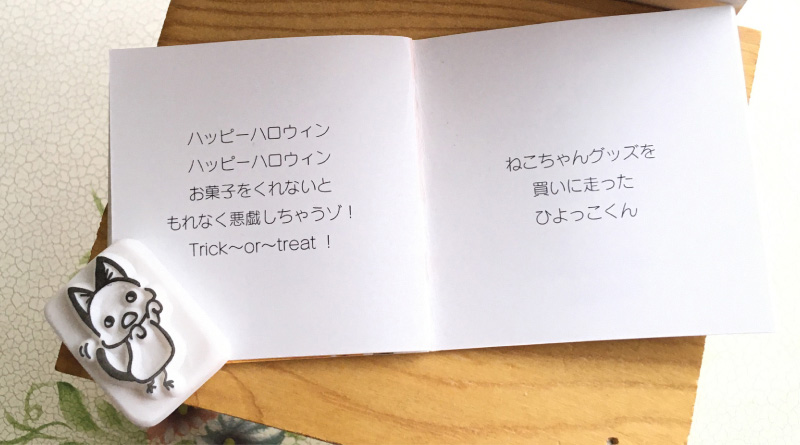 ハッピーハロウィン
ハッピーハロウィン
お菓子をくれないと
もれなく悪戯しちゃうゾ！
Trick〜or〜treat！
ねこちゃんグッズを
買いに走った
ひよっこくん